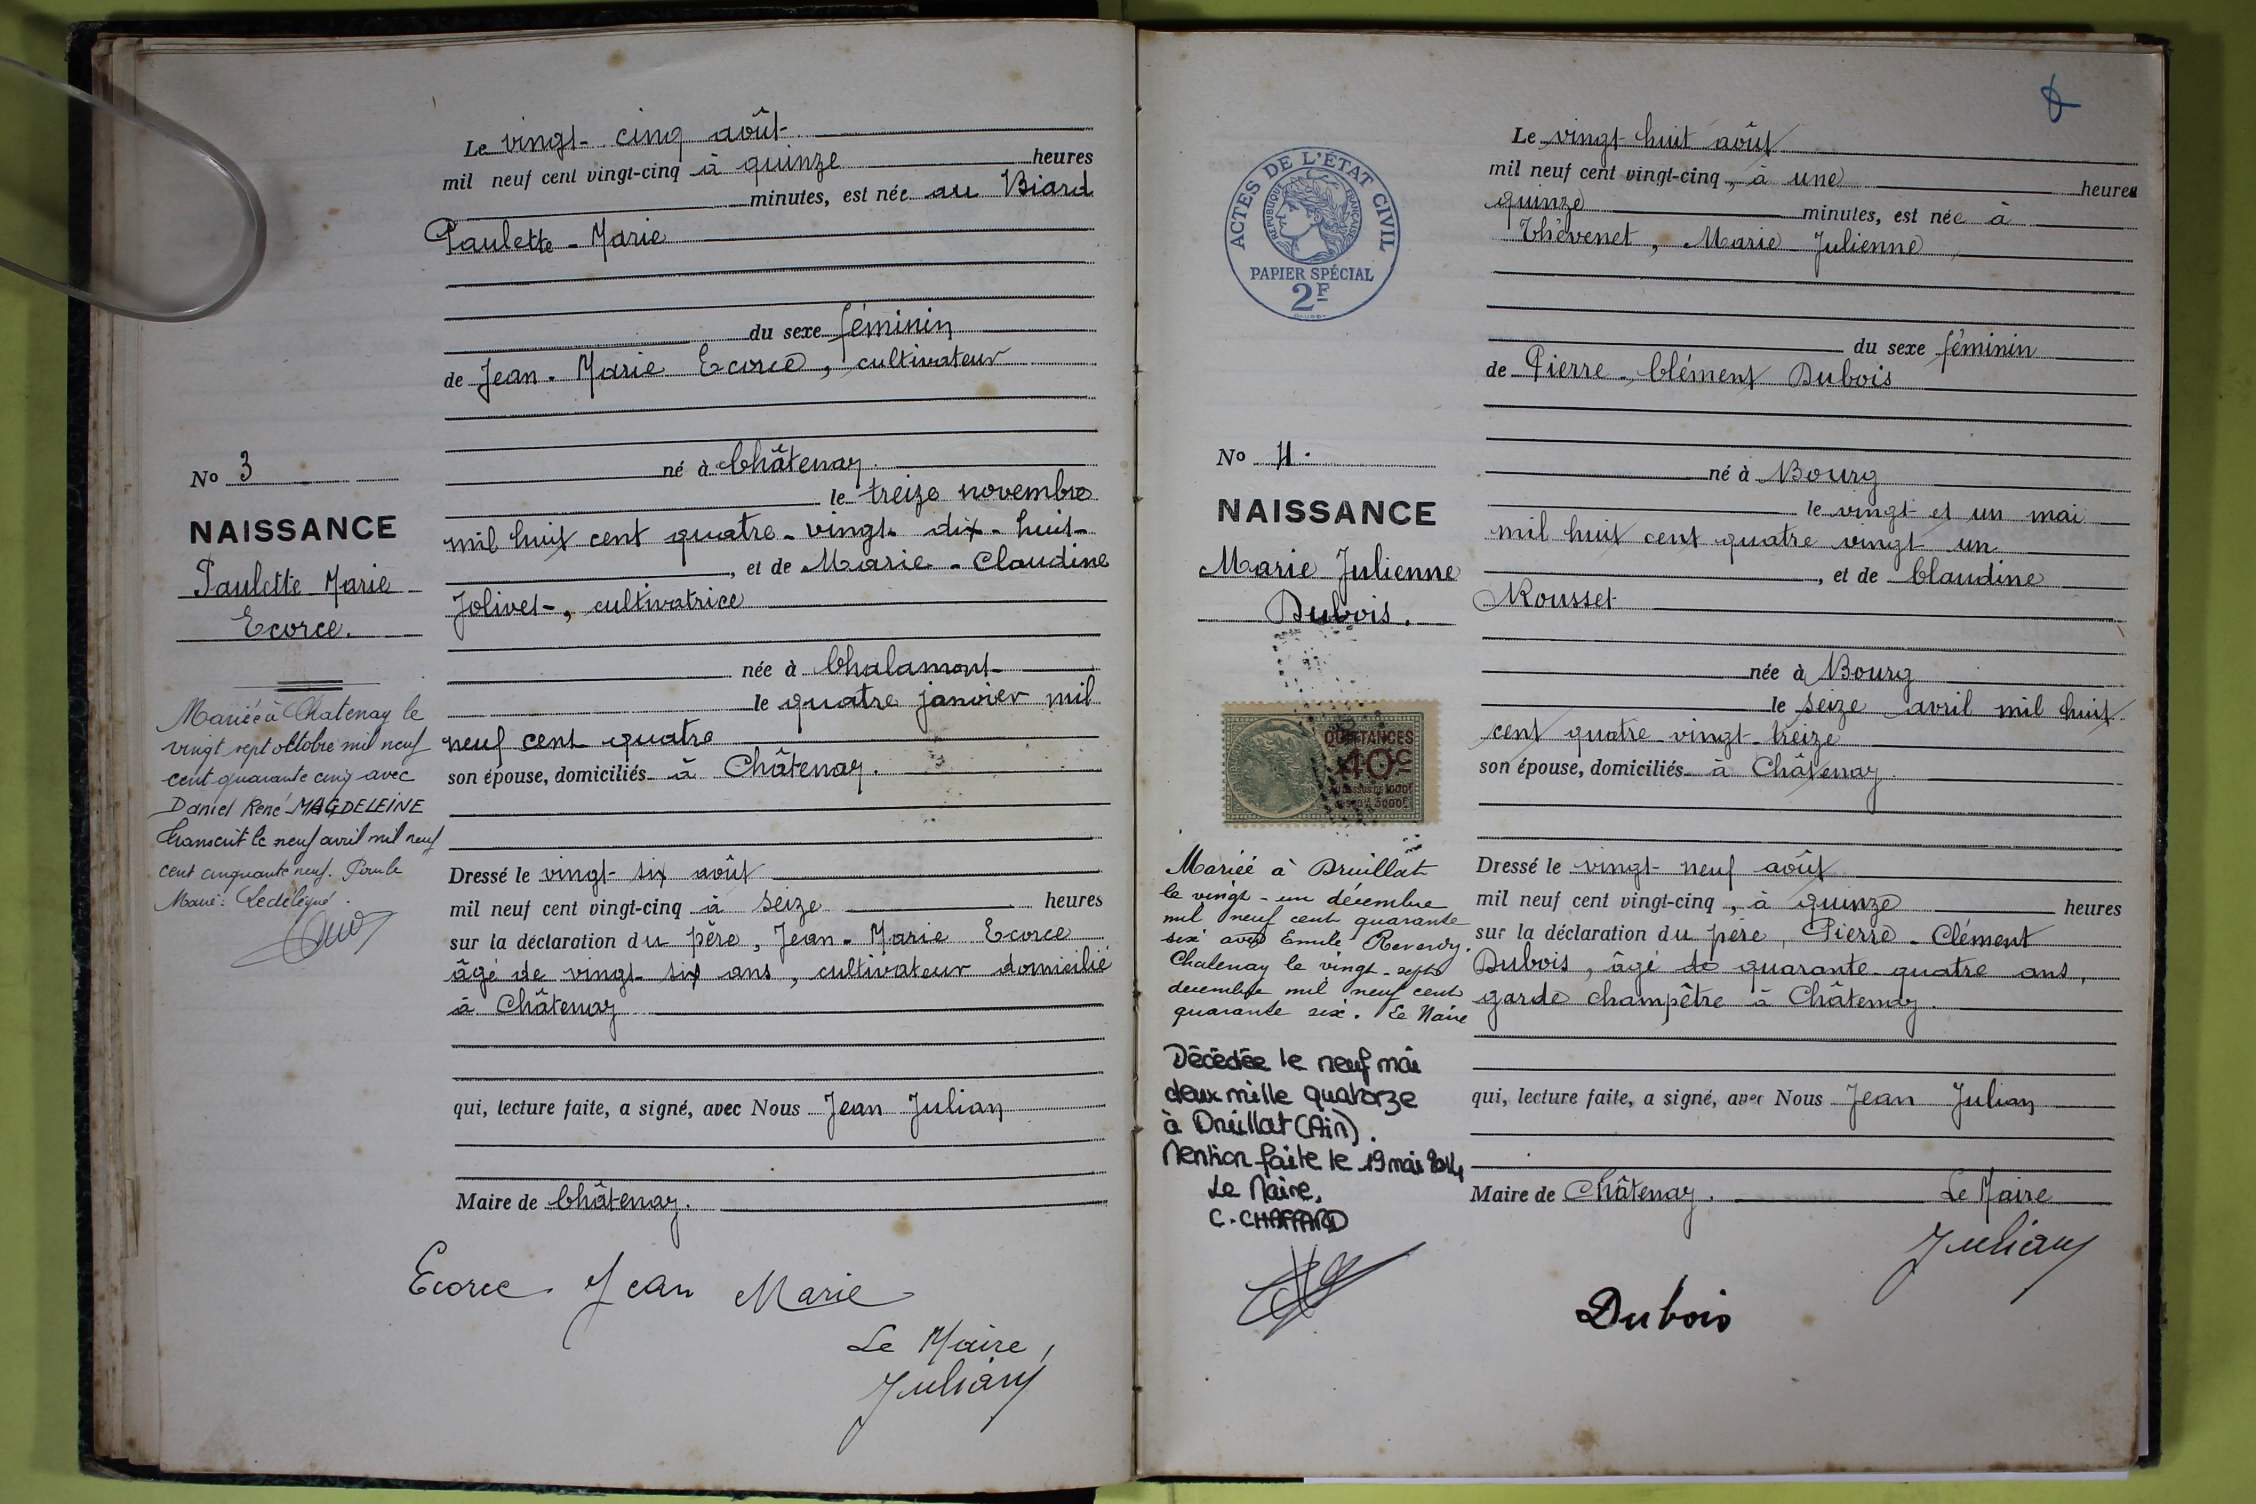 Le vingt-cinq août
mil neuf cent vingt-cinq à quinze heures
minutes, est née au Biard
Paulette-Marie
du sexe féminin
de Jean-Marie Ecorce, cultivateur
né à Châtenay.
le treize novembre
mil huit cent quatre-vingt-dix-huit
, et de Marie-Claudine
Jolivet, cultivatrice
née à Chalamont
le quatre janvier mil
neuf cent quatre
son épouse, domiciliés à Châtenay.
Dressé le vingt-six août
mil neuf cent vingt-cinq à seize heures
sur la déclaration du père, Jean-Marie Ecorce
âgé de vingt-six ans, cultivateur domicilié
à Châtenay
qui, lecture faite, a signé, avec Nous Jean Julian
Maire de Châtenay.
Ecorce Jean Marie
Le Maire,
Julian
No 3
NAISSANCE
Paulette Marie
Ecorce.
Mariée à Chatenay le
vingt sept octobre mil neuf
cent quarante cinq avec
Daniel René MAGDELEINE
Transcrit le neuf avril mil neuf
cent cinquante neuf. Pour le
Maire: Le délégué.
ACTES DE L'ÉTAT CIVIL
RÉPUBLIQUE FRANÇAISE
PAPIER SPÉCIAL
2F
Le vingt huit août
mil neuf cent vingt-cinq, à une heures
quinze minutes, est née à
Thévenet, Marie Julienne
du sexe féminin
de Pierre-Clément Dubois
né à Bourg
le vingt et un mai
mil huit cent quatre vingt un
, et de Claudine
Rousset
née à Bourg
le seize avril mil huit
cent quatre-vingt-treize
son épouse, domiciliés à Châtenay.
Dressé le vingt-neuf août
mil neuf cent vingt-cinq, à quinze heures
sur la déclaration du père, Pierre-Clément
Dubois, âgé de quarante-quatre ans,
garde champêtre à Châtenay.
qui, lecture faite, a signé, avec Nous Jean Julian
Maire de Châtenay. Le Maire
Julian
Dubois
No 4.
NAISSANCE
Marie Julienne
Dubois.
QUITTANCES
40c
Mariée à Druillat
le vingt-un décembre
mil neuf cent quarante
six avec Emile Reverdy.
Chatenay le vingt-sept
décembre mil neuf cent
quarante six. Le Maire
Décédée le neuf mai
deux mille quatorze
à Druillat (Ain).
Mention faite le 19 mai 2014
Le Maire,
C. CHAFFARD